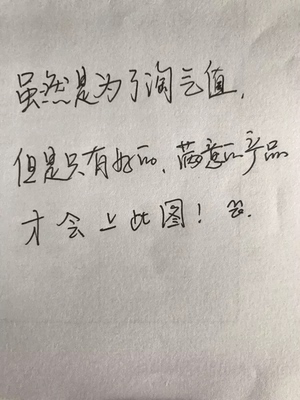 虽然是为了淘气值，
但是只有好品、满意的产品
才会上此图！